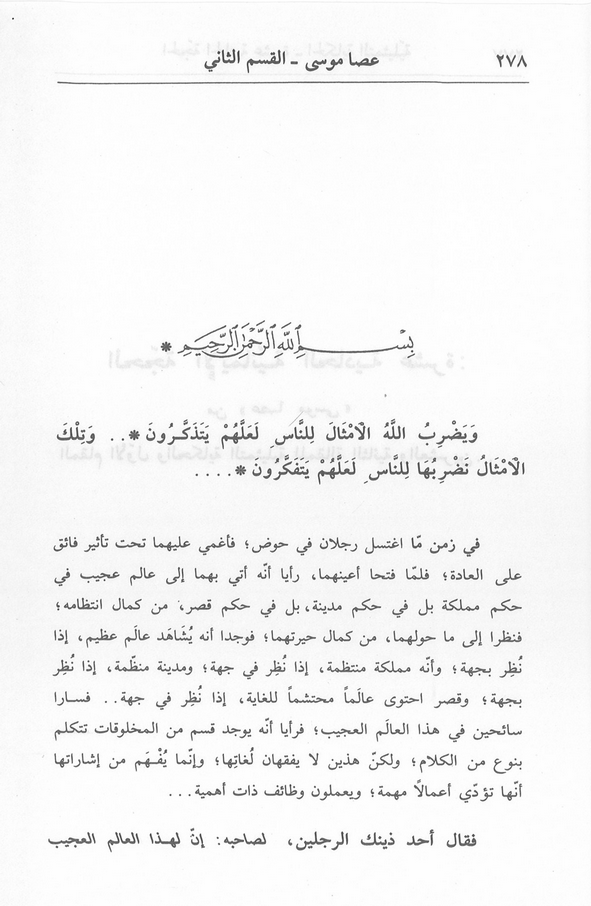 ٢٧٨ عصا موسى - القسم الثاني
بِسْمِ ٱللَّهِ ٱلرَّحْمَنِ ٱلرَّحِيمِ *
وَيَضْرِبُ اللَّهُ الْاَمْثَالَ لِلنَّاسِ لَعَلَّهُمْ يَتَذَكَّرُونَ *.. وَتِلْكَ
الْاَمْثَالُ نَضْرِبُهَا لِلنَّاسِ لَعَلَّهُمْ يَتَفَكَّرُونَ *....
في زمن مّا اغتسل رجلان في حوض؛ فأغمي عليهما تحت تأثير فائق
على العادة؛ فلمّا فتحا أعينهما، رأيا أنّه أتي بهما إلى عالم عجيب في
حكم مملكة بل في حكم مدينة، بل في حكم قصر، من كمال انتظامه؛
فنظرا إلى ما حولهما، من كمال حيرتهما؛ فوجدا أنه يُشَاهَد عالَم عظيم، إذا
نُظِر بجهة؛ وأنه مملكة منتظمة، إذا نُظِر في جهة؛ ومدينة منظّمة، إذا نُظِر
بجهة؛ وقصر احتوى عالَماً محتشماً للغاية، إذا نُظِر في جهة.. فسارا
سائحين في هذا العالَم العجيب؛ فرأيا أنّه يوجد قسم من المخلوقات تتكلم
بنوع من الكلام؛ ولكنّ هذين لا يفقهان لُغاتِها؛ وإنّما يُفْهَم من إشاراتها
أنّها تؤدّي أعمالاً مهمة؛ ويعملون وظائف ذات أهمية...
فقال أحد ذينك الرجلين، لصاحبه: إنّ لهذا العالم العجيب